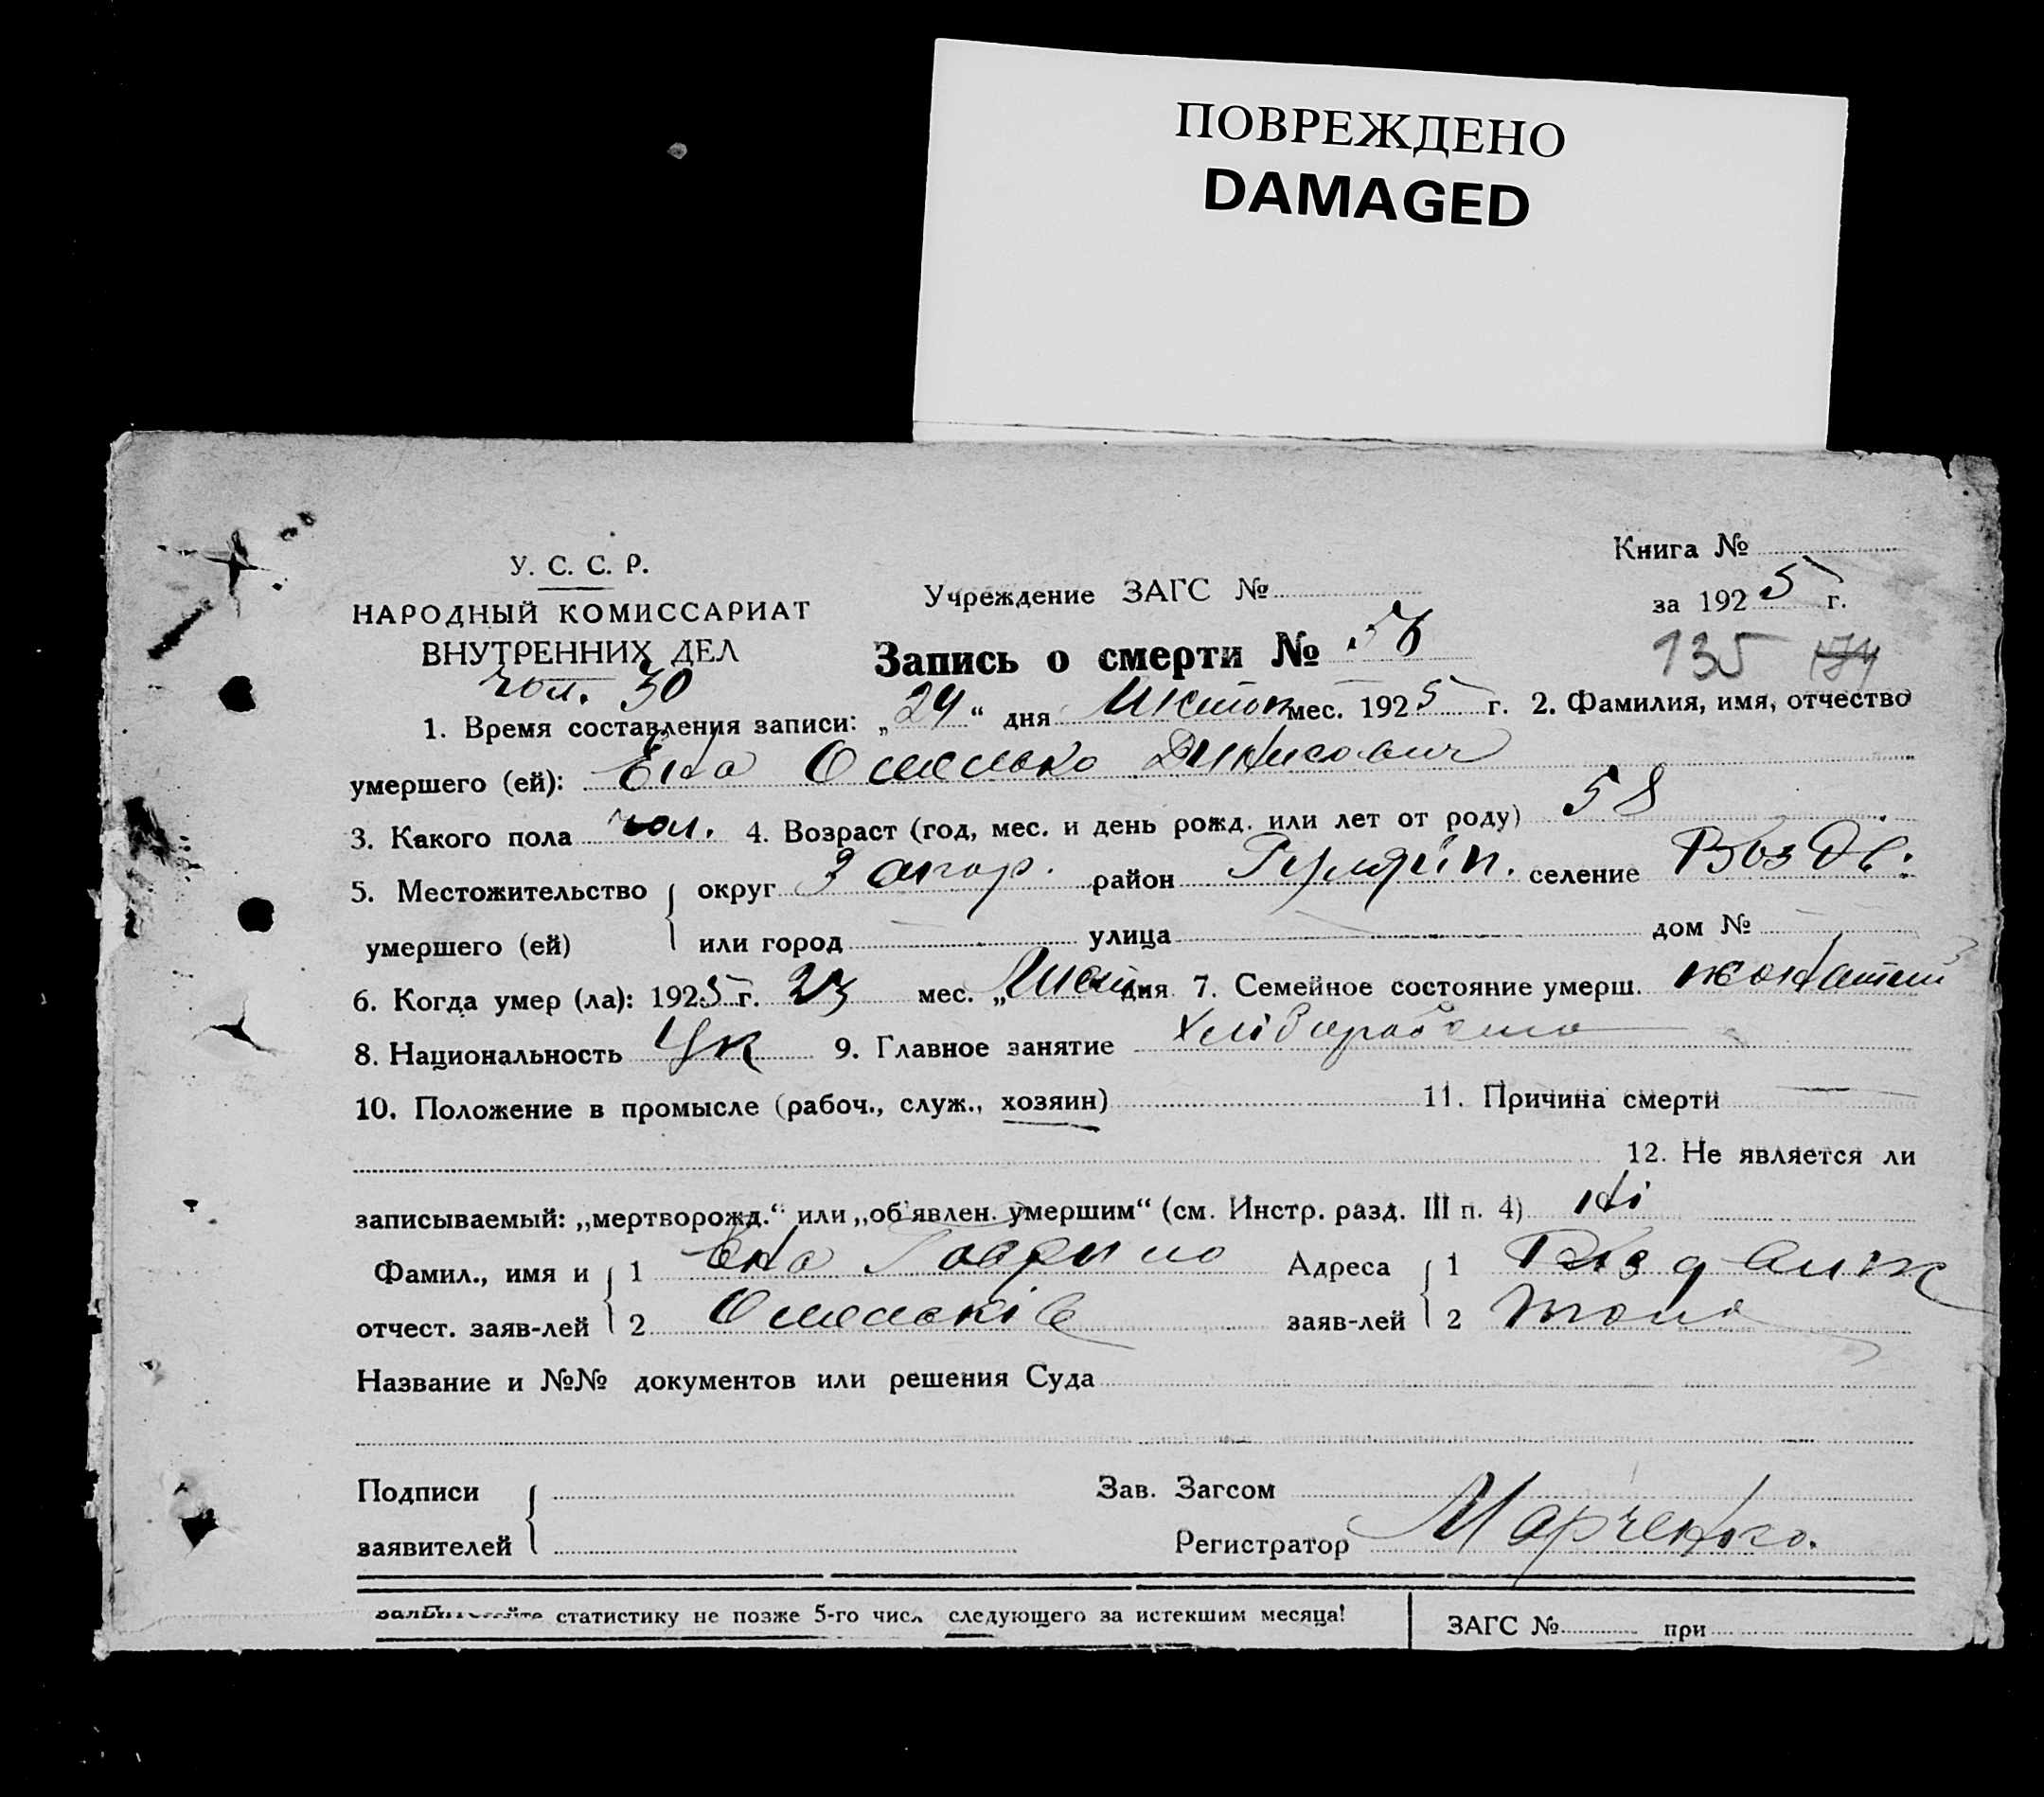 ПОВРЕЖДЕНО
DAMAGED
У. С. С. Р.
НАРОДНЫЙ КОМИССАРИАТ
ВНУТРЕННИХ ДЕЛ
чол. 30
Учреждение ЗАГС №
Запись о смерти № 56
Книга №
за 1925 г.
135 134
1. Время составления записи: „24“ дня мес. 1925 г. 2. Фамилия, имя, отчество
умершего (ей): Ена Омелько Динисович
3. Какого пола чол. 4. Возраст (год, мес. и день рожд. или лет от роду) 58
5. Местожительство умершего (ей) округ Запор. район селение Воздв.
или город улица дом №
6. Когда умер (ла): 1925 г. 23 мес. „ дня 7. Семейное состояние умерш. жонатий
8. Национальность Ук 9. Главное занятие
10. Положение в промысле (рабоч., служ., хозяин) 11. Причина смерти
12. Не является ли
записываемый: „мертворожд.“ или „об'явлен. умершим“ (см. Инстр. разд. III п. 4) ні
Фамил., имя и отчест. заяв-лей 1 Ена Гаврило Адреса заяв-лей 1 Воздвиж
2 Омельків 2 тоже
Название и №№ документов или решения Суда
Подписи заявителей
Зав. Загсом
Регистратор Марченко.
статистику не позже 5-го числ следующего за истекшим месяца!
ЗАГС № при